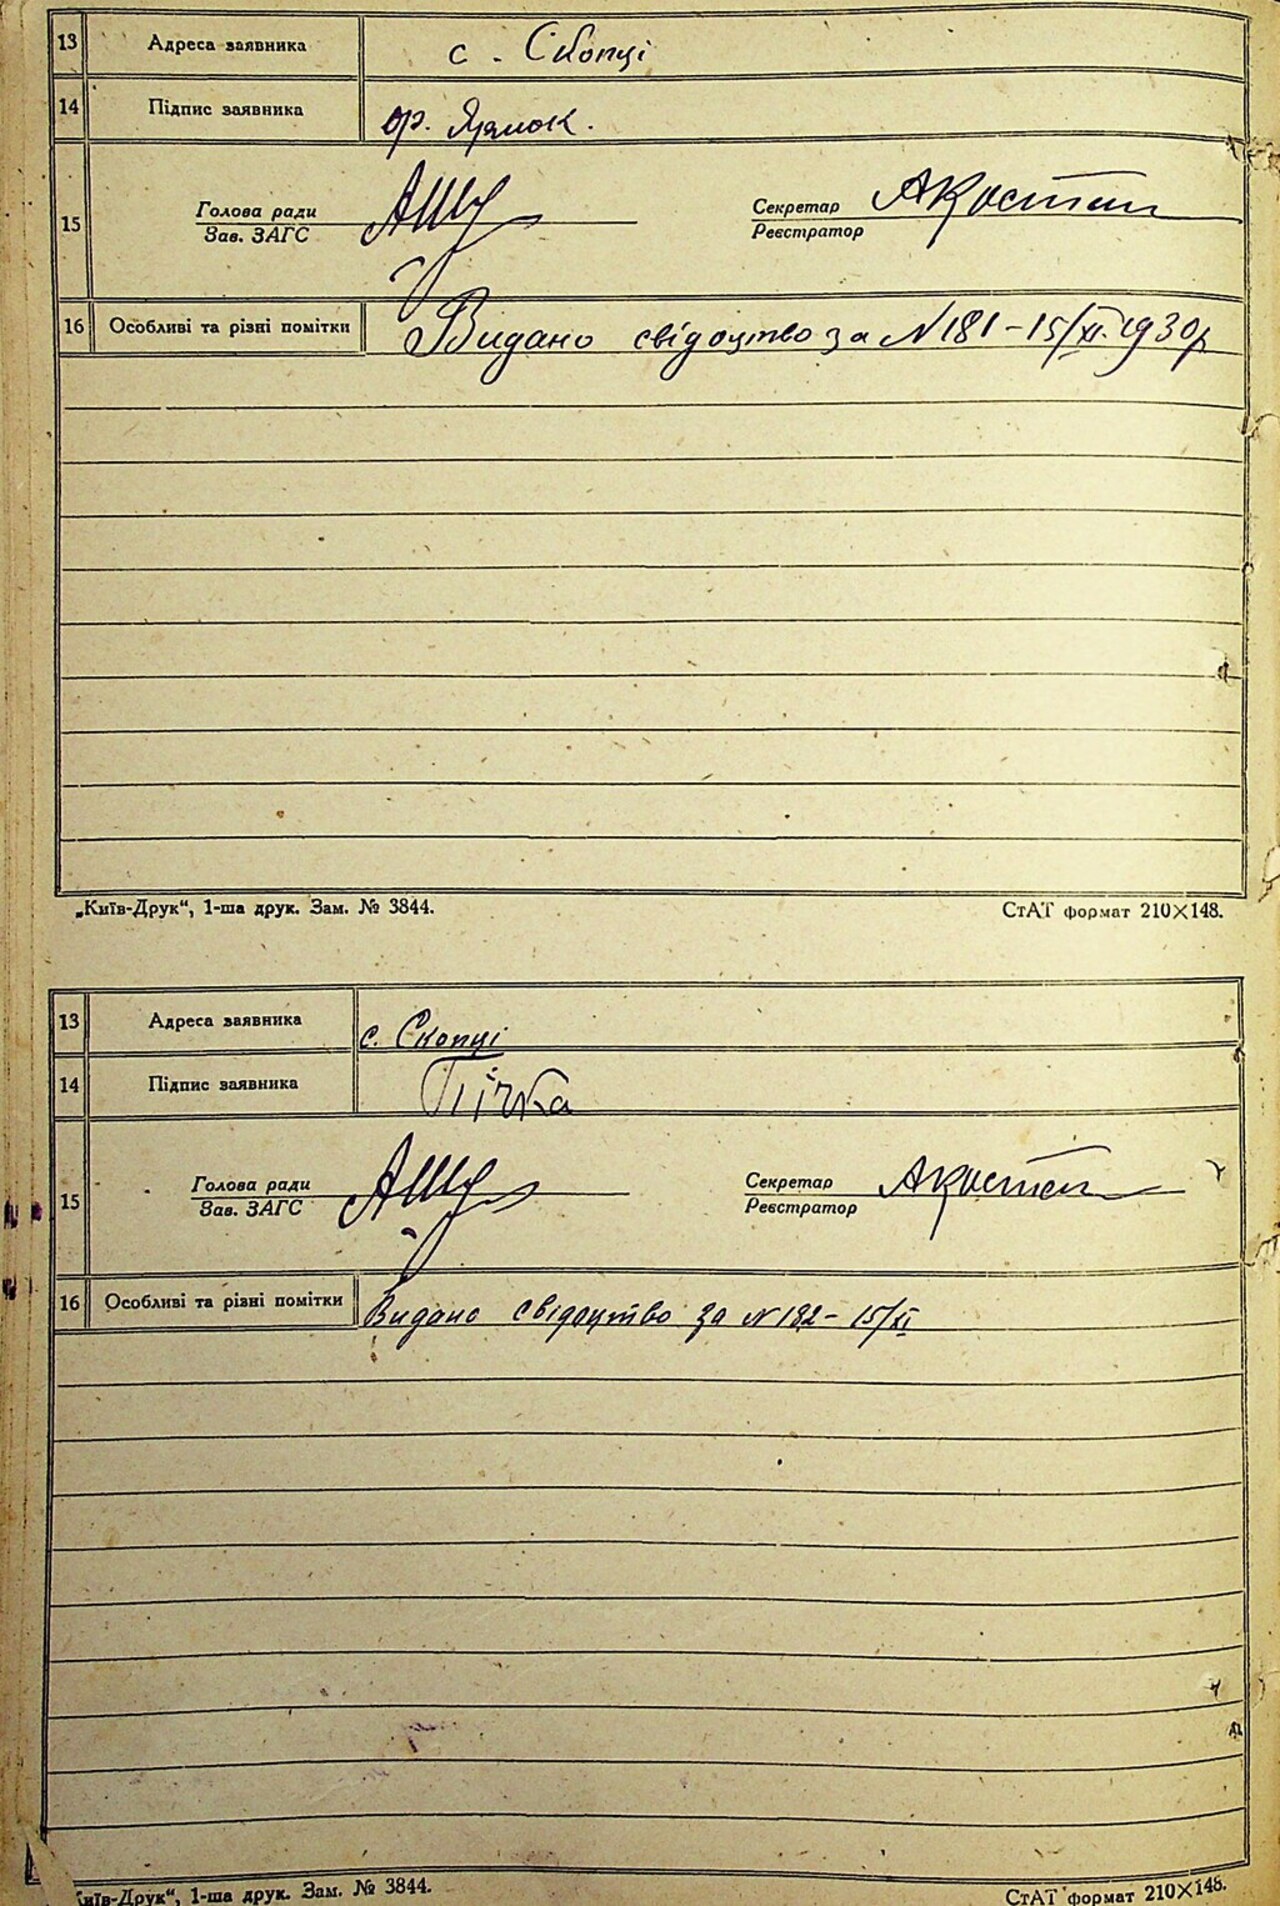 13 Адреса заявника с. Скопці
14 Підпис заявника
15 Голова ради Секретар
Зав. ЗАГС Реєстратор
16 Особливі та різні помітки Видано свідоцтво за N 181 - 15/XI. 1930р
„Київ-Друк“, 1-ша друк. Зам. № 3844. СтАТ формат 210×148.
13 Адреса заявника с. Скопці
14 Підпис заявника Пічка
15 Голова ради Секретар
Зав. ЗАГС Реєстратор
16 Особливі та різні помітки Видано свідоцтво за N 182 - 15/XI
Київ-Друк“, 1-ша друк. Зам. № 3844. СтАТ формат 210×148.